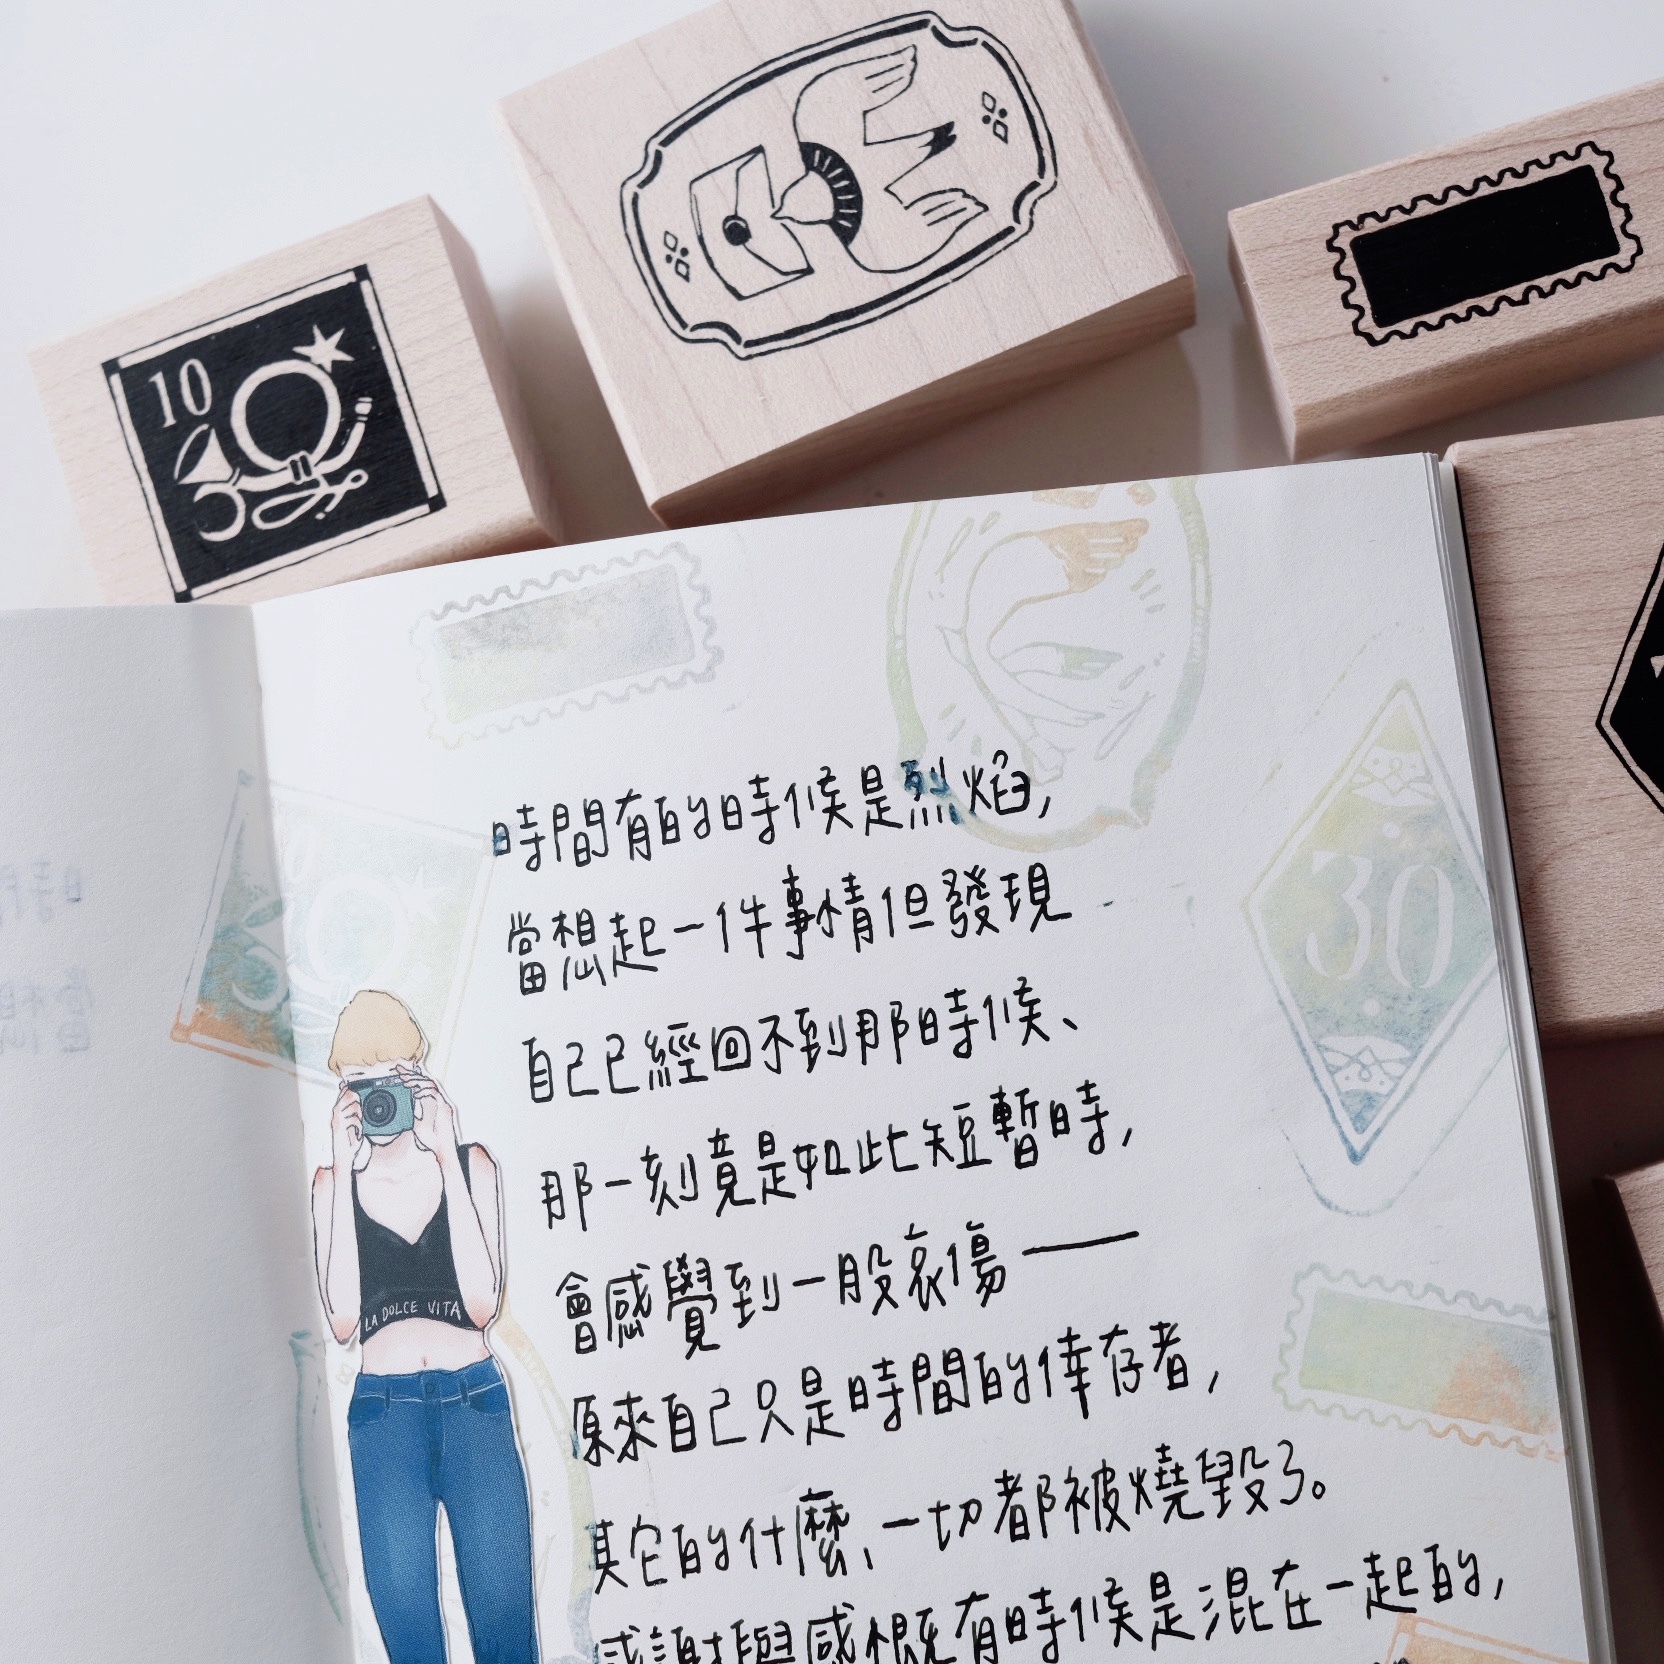 10
30
時間有的時候是烈焰,
當想起一件事情但發現
自己已經回不到那時候、
那一刻竟是如此短暫時,
會感覺到一股哀傷——
原來自己只是時間的倖存者,
其它的什麼、一切都被燒毀了。
感謝與感慨有時候是混在一起的,
LA DOLCE VITA